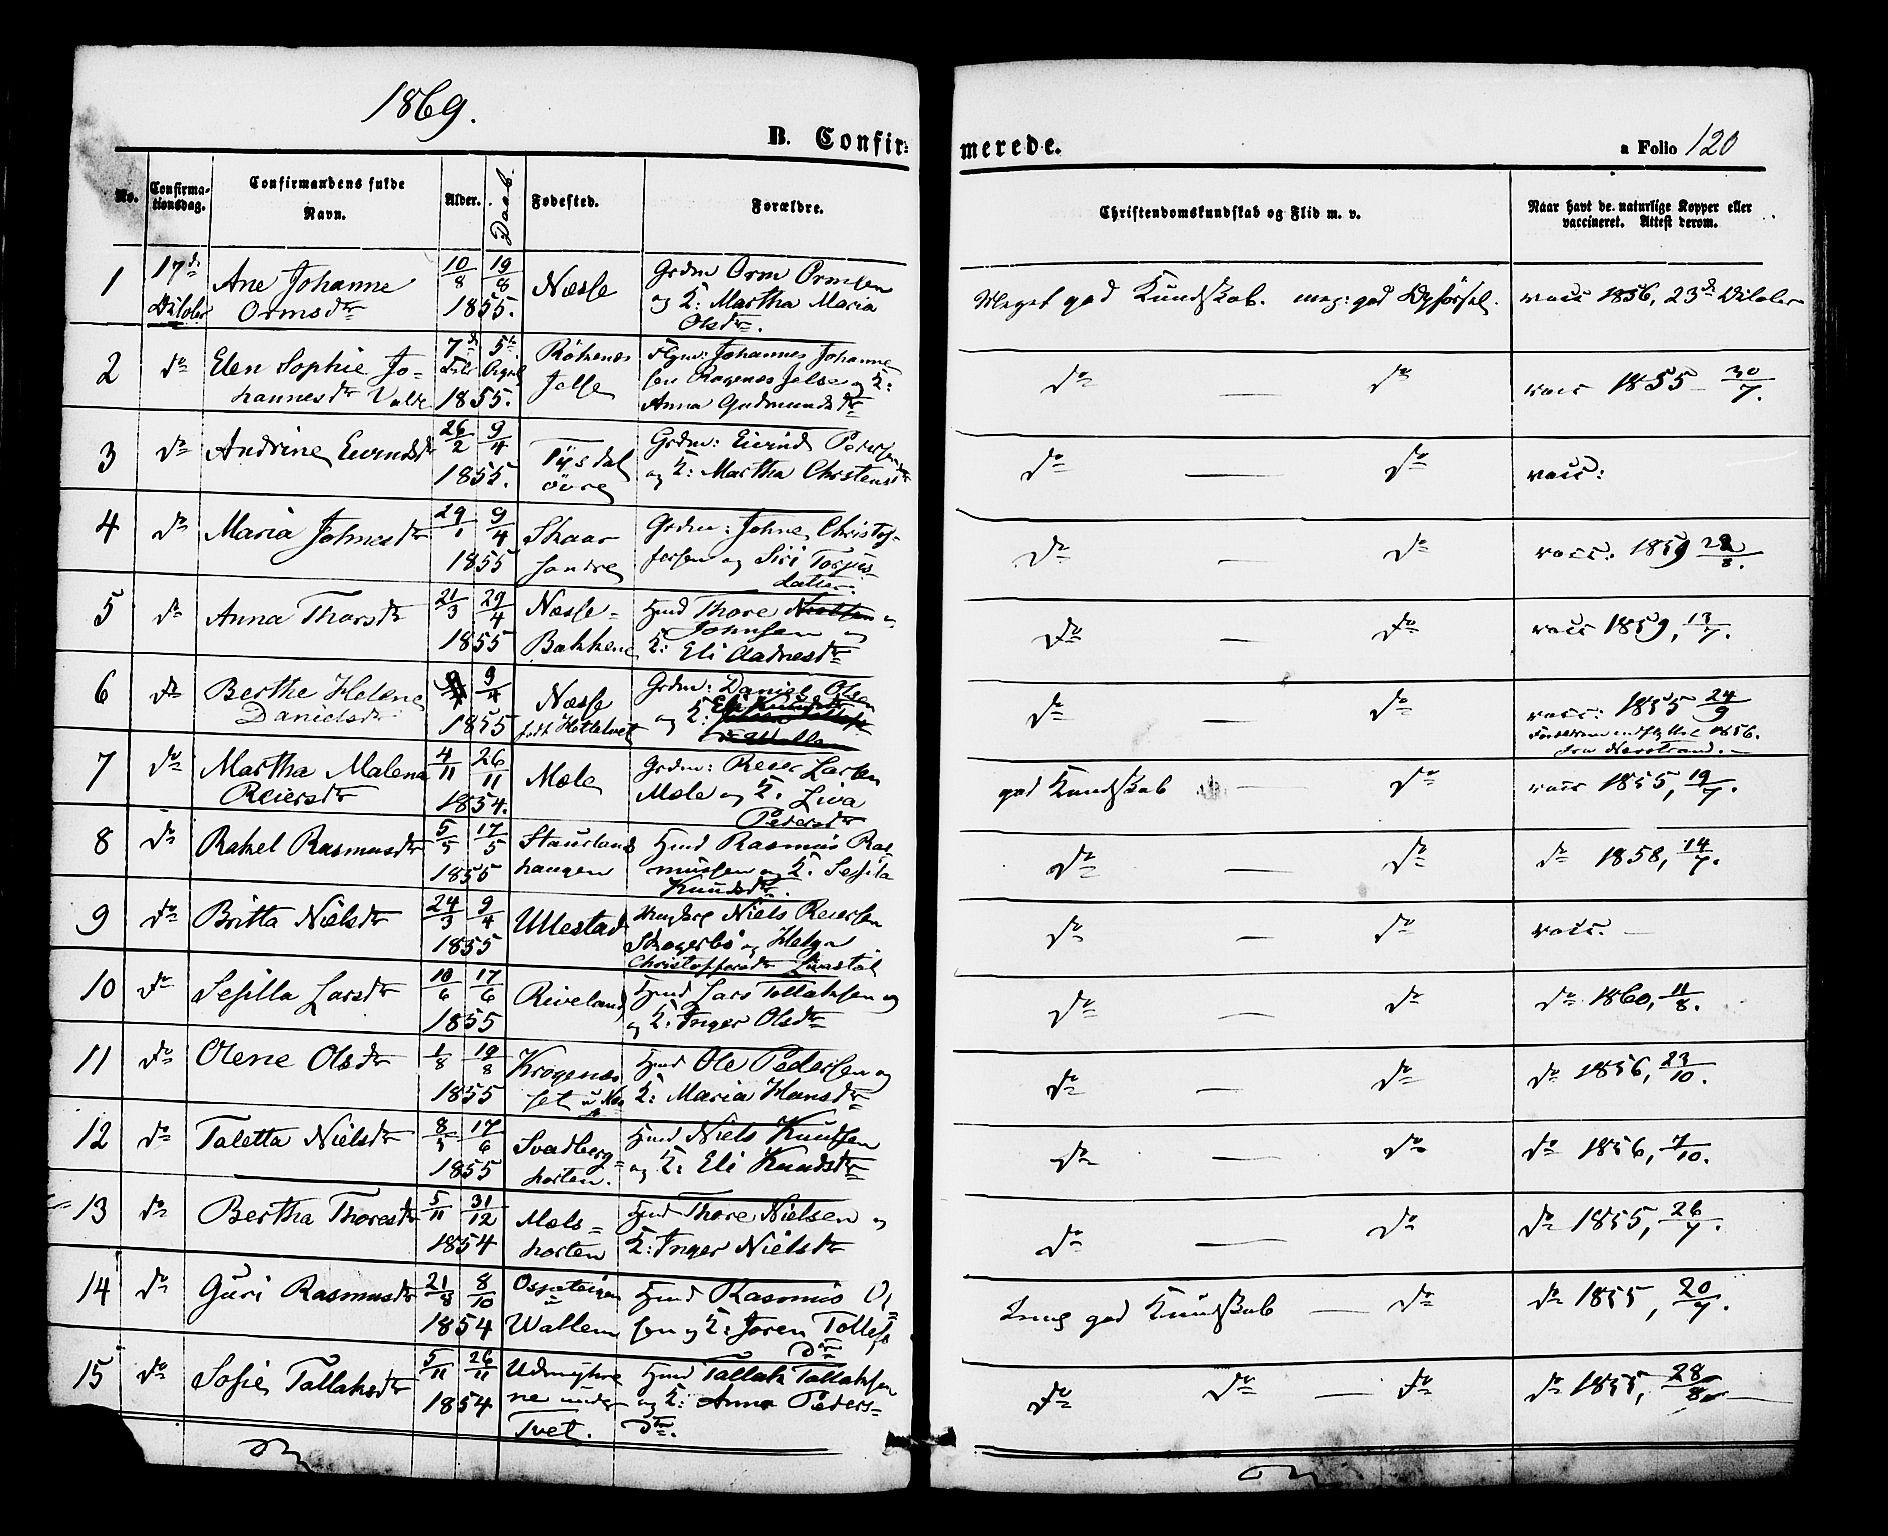 1869.
B. Confir-
merede.
a Folio 120
No.
Confirma-
tionsdag.
Confirmandens fulde
Navn.
Alder.
Daab.
Fødested.
Forældre.
Christendomskundskab og Flid m. v.
Naar havt de naturlige Kopper eller
vaccineret. Attest derom.
1 17de Ane Johanne 10/8 19/8 Næsse Grdm Orm Ormsen
Ormsdtr 1855. og K: Martha Maria
Olsdtr.
Meget god Kundskab. meg: god Opførsel. vacc 1856, 23de
2 do Elen Sophie Jo- 7de 5te Johannes Johanne
hannesdtr 1855. Jelse sen Jelse og K:
Anna Gudmundsdtr
do do vacc 1855 30/7.
3 do Andrine Eivindsdtr 26/2 9/4 Tysdal Grdm: Eivind Peders
1855. øvre og K: Martha Christensdtr
do — do vacc:
4 do Maria Johnesdtr 29/1 9/4 Skaar Grdm: Johne Christof-
1855 søndre fersen og Siri Torjus-
datter
do — do vacc: 1859
5 do Anna Thorsdtr 21/3 29/4 Næsse- Hmd Thore
1855 Bakkene Johnsen og
K: Eli Aadnesdtr
do — do vacc 1859, 13/7.
6 do Berthe Helene 9/4 Næsse Grdm: Daniel Olsen
Danielsdtr 1855 født Hettelvet og K:
do — do vacc: 1855 24/9
1856.
fra Nerstrand.
7 do Martha Malena 4/11 26/11 Mæle Grdm: Reier Larsen
Reiersdtr 1854. Mæle og K. Liva
Pedersdtr
god Kundskab — do vacc 1855, 19/7.
8 do Rakel Rasmusdtr 5/5 17/5 Staurlands Hmd Rasmus Ras-
1855 haugen mussen og K. Sesila
Knudsdtr.
do — do do 1858, 14/7.
9 do Britta Nielsdtr 24/3 9/4 Ullestad Niels Reiersen
1855 og Helga
Christoffersdtr
do — do vacc. —
10 do Sesilla Larsdtr 10/6 17/6 Riveland Hmd Lars Tollaksen og
1855 og K: Inger Olsdtr
do — do do 1860, 11/8.
11 do Olene Olsdtr 1/8 19/8 Krogenæs Hmd Ole Pedersen og
1855 K: Maria Hansdtr
do — do do 1856, 23/10.
12 do Taletta Nielsdtr 8/5 17/6 Svadberg- Hmd Niels Knudsen
1855 horten. og K: Eli Knudsdtr
do — do do 1856, 7/10.
13 do Bertha Thoresdtr 5/11 31/12 Mæls- Hmd Thore Nielsen og
1854 horten K: Inger Nielsdtr
do — do do 1855, 26/7.
14 do Guri Rasmusdtr 21/8 8/10 Hmd Rasmus Ol-
1854 Wallem sen og K: Joren Tollefs
dtr
god Kundskab — do do 1855, 20/7.
15 do Sosie Tallaksdtr 5/11 26/11 Hmd Tallak Tallaksen
1854 ne under og K: Anna Peders-
Tvet. dtr.
do do — do do 1855, 28/8